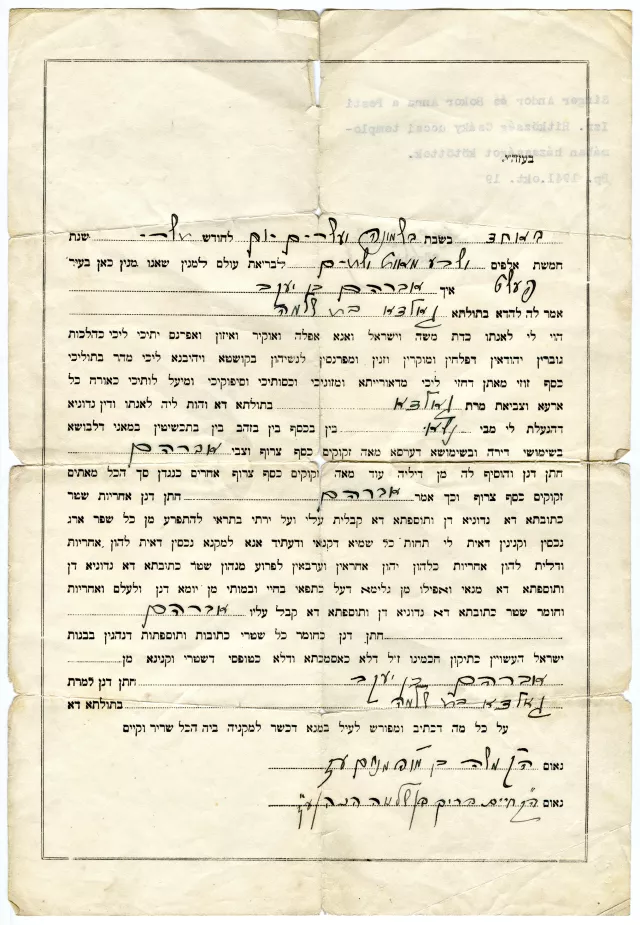 Singer Andor és Bokor Anna a Pesti
Izr. Hitközség Csáky uccai templo-
mában házasságot kötöttek.
Bp. 1941.okt. 19
בעזה״י.
באחד בשבת בשמונה ועשרים יום לחודש תשרי שנת
חמשת אלפים ושבע מאות ושתים לבריאת עולם למנין שאנו מנין כאן בעיר
פעסט איך אברהם בן יעקב
אמר לה להדא בתולתא בת שלמה
הוי לי לאנתו כדת משה וישראל ואנא אפלה ואוקיר ואיזון ואפרנס יתיכי ליכי כהלכות
גוברין יהודאין דפלחין ומוקרין וזנין ומפרנסין לנשיהון בקושטא ויהיבנא ליכי מהר בתוליכי
כסף זוזי מאתן דחזי ליכי מדאורייתא ומזוניכי וכסותיכי וסיפוקיכי ומיעל לותיכי כאורח כל
ארעא וצביאת מרת בתולתא דא והות ליה לאנתו ודין נדוניא
דהנעלת לי מבי בין בכסף בין בזהב בין בתכשיטין במאני דלבושא
בשימושי דירה ובשימושא דערסא מאה זקוקים כסף צרוף וצבי אברהם
חתן דנן והוסיף לה מן דיליה עוד מאה זקוקים כסף צרוף אחרים כנגדן סך הכל מאתים
זקוקים כסף צרוף וכך אמר אברהם חתן דנן אחריות שטר
כתובתא דא נדוניא דן ותוספתא דא קבלית עלי ועל ירתי בתראי להתפרע מן כל שפר ארג
נכסין וקנינין דאית לי תחות כל שמיא דקנאי ודעתיד אנא למקנא נכסין דאית להון אחריות
ודלית להון אחריות כלהון יהון אחראין וערבאין לפרוע מנהון שטר כתובתא דא נדוניא דן
ותוספתא דא מנאי ואפילו מן גלימא דעל כתפאי בחיי ובמותי מן יומא דנן ולעלם ואחריות
וחומר שטר כתובתא דא נדוניא דן ותוספתא דא קבל עליו אברהם
חתן דנן כחומר כל שטרי כתובות ותוספתות דנהגין בבנות
ישראל העשויין כתיקון חכמינו ז״ל דלא כאסמכתא ודלא כטופסי דשטרי וקנינא מן
אברהם בן יעקב חתן דנן למרת
בת שלמה בתולתא דא
על כל מה דכתיב ומפורש לעיל במנא דכשר למקניה ביה הכל שריר וקיים
נאום הק׳ משה בן
נאום הק׳ חיים בן שלמה